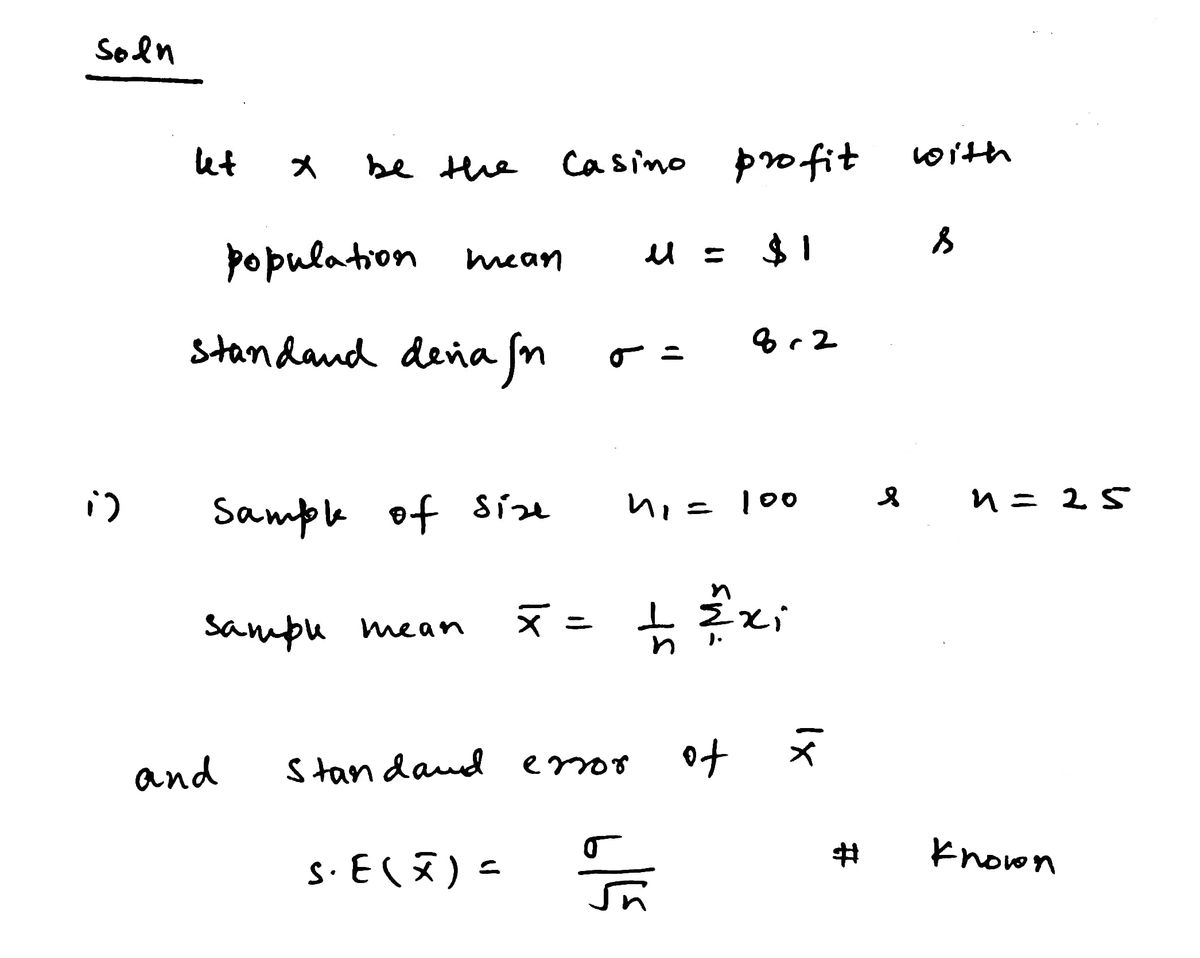 Soln
let x be the Casino profit with
population mean μ = $1 &
standard deviaʃn σ = 8.2
i) Sample of size n₁ = 100 & n = 25
sample mean x̄ = 1/n Σ₁ⁿ xᵢ
and standard error of x̄
S.E(x̄) = σ/√n # Known